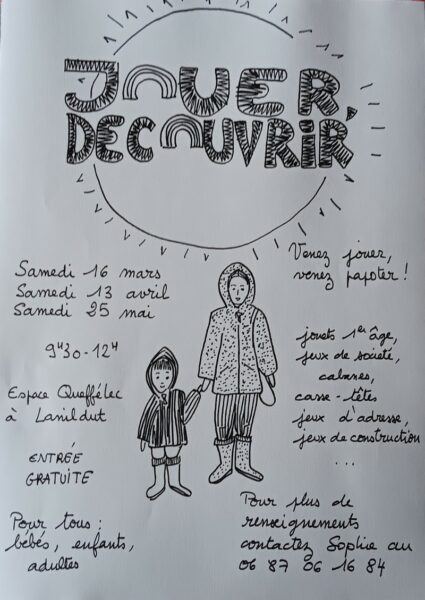 JOUER,
DECOUVRIR,
Venez jouer,
venez papoter !
Samedi 16 mars
Samedi 13 avril
Samedi 25 mai
9H30-12H
Espace Queffélec
à Lanildut
ENTRÉE
GRATUITE
Pour tous :
bébés, enfants,
adultes
jouets 1er âge,
jeux de société,
cabanes,
casse-têtes
jeux d'adresse,
jeux de construction
...
Pour plus de
renseignements
contactez Sophie au
06 87 06 16 84